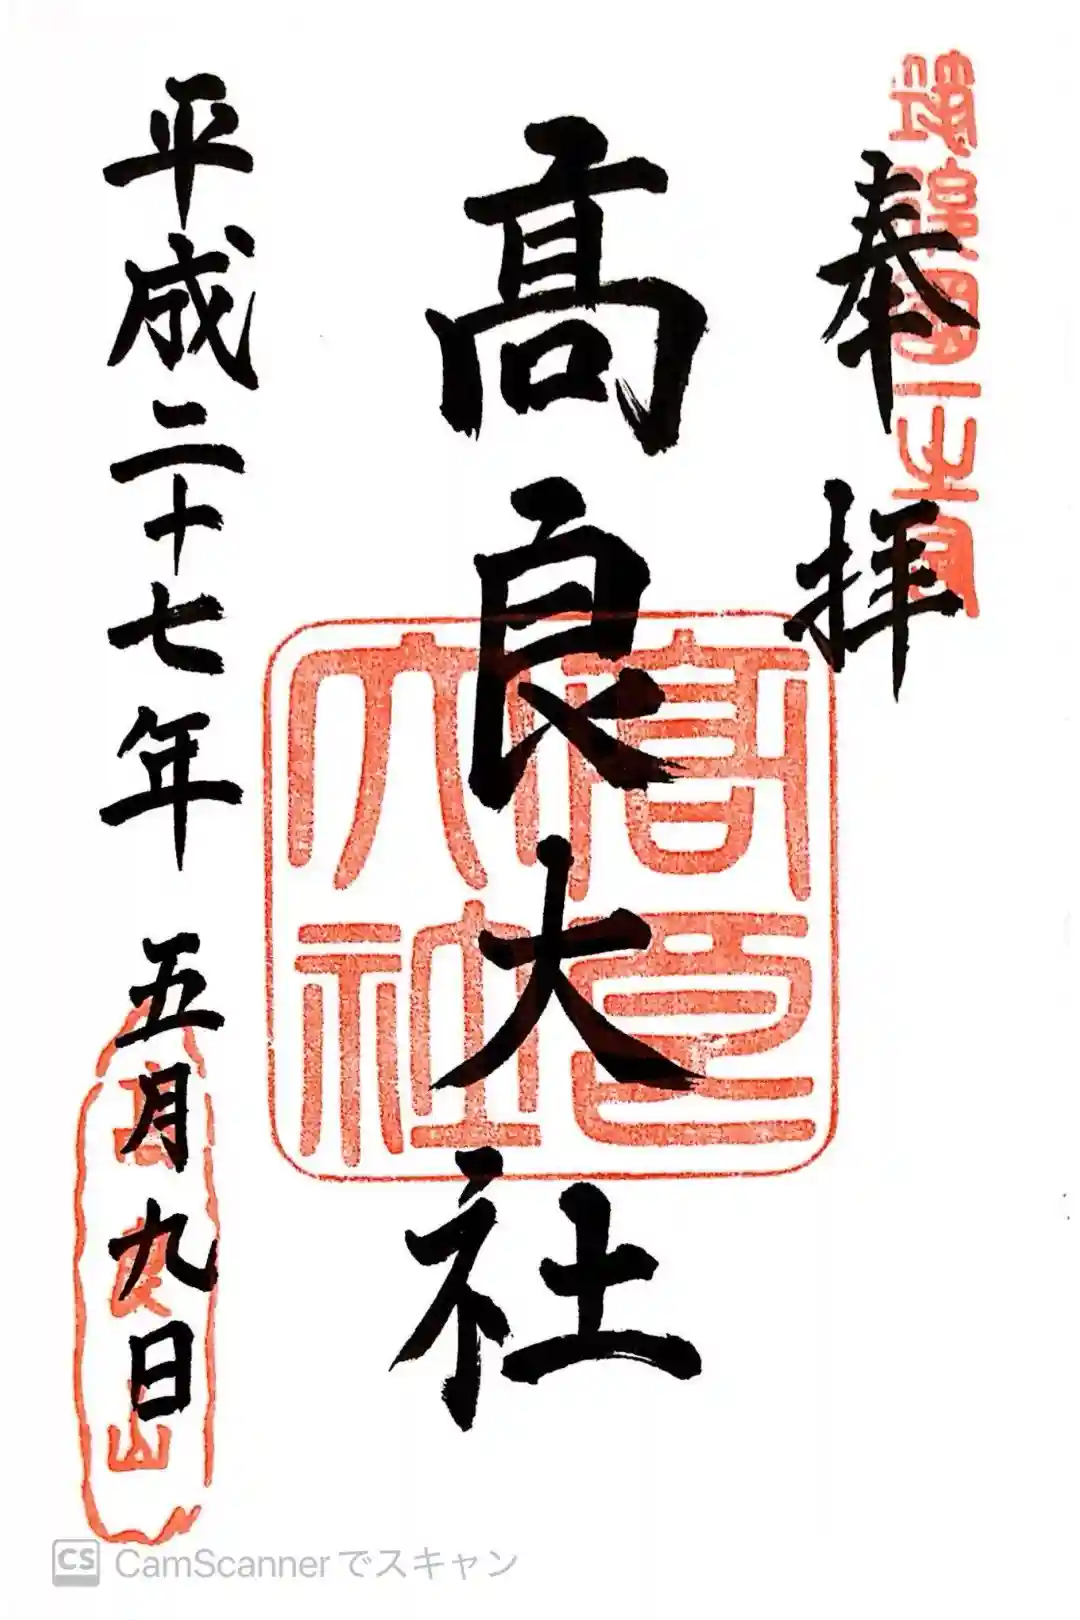 奉拝
筑後国一之宮
髙良大社
髙良大社
平成二十七年 五月九日
高良山
CS CamScannerでスキャン